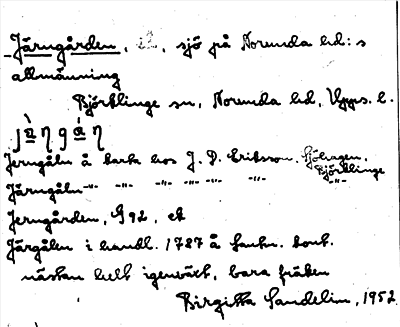 Järngården, sjö på Norunda hd:s
allmänning
Björklinge sn, Norunda hd, Upps. l.
Jerngåln å karta hos J. P. Eriksson. Sjöhagen, Björklinge
Järngåln -"- -"- -"- -"- -"- -"- -"-
Jerngården, G 92, ek
Järgåln i handl. 1787 å lantm. kont.
nästan helt igenväxt, bara fräken
Birgitta Sandelin, 1952